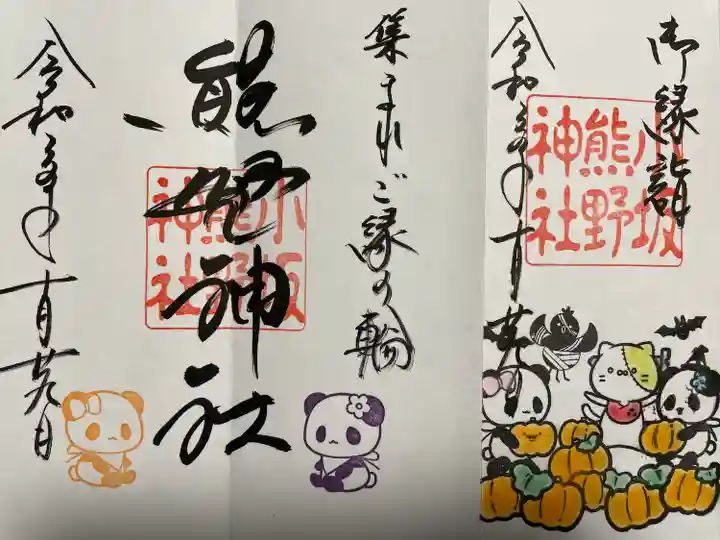 御縁詣
小坂
熊野
神社
令和
年
十月廿九日
集まれご縁の輪
熊野神社
小坂
熊野
神社
令和
年
十月廿九日